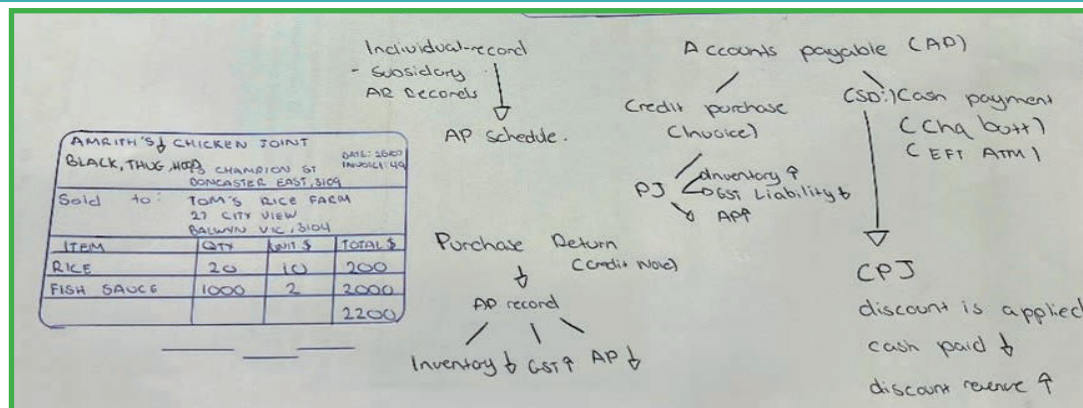 AMRITH'S CHICKEN JOINT
BLACK, THUG, CHAMPION ST
DONCASTER EAST, 3109
DATE:
INVOICE: 49
Sold to: TOM'S RICE FARM
27 CITY VIEW
BALWYN VIC, 3104
ITEM QTY UNIT $ TOTAL $
RICE 20 10 200
FISH SAUCE 1000 2 2000
2200
Individual record
- Subsidary
AR Records
AP Schedule.
Purchase Return
(Credit Note)
AP record
Inventory ↓ GST ↑ AP ↓
Accounts payable (AP)
Credit purchase
(Invoice)
PJ
Inventory ↑
GST Liability ↓
AP↑
Cash payment
(Chq butt)
(EFT ATM)
CPJ
discount is applied
cash paid ↓
discount revenue ↑